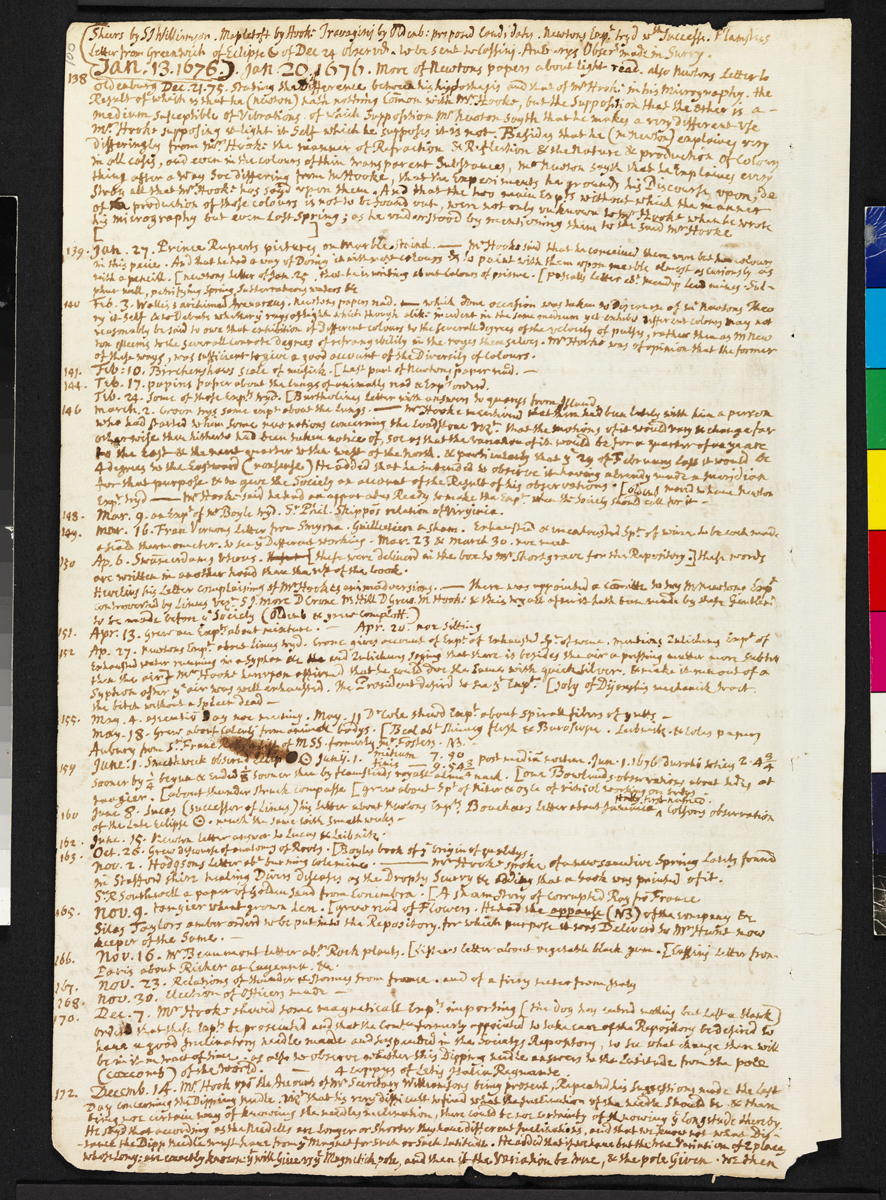 Sheers by Sr J Williamson. Mapletoft by Hook: Travagini by Oldenb: propos'd Candidats. Newtons Exp.t tryd wth Successe. Flamsteeds
Letter from Greenwich of Eclipse of Dec 24 observd. to be sent to Cassini. Aubrys Obser: made in Surry.
138 Jan. 13. 1676). Jan. 20. 1676. More of Newtons papers about light read. also Newtons Letter to
oldenburg Dec. 21. 75. stating the Difference between his hipothesis and that of Mr Hook: in his Micrography. the
Result of which is that he (newton) hath nothing Comon with Mr Hooke, but the Supposition that the ether is a -
medium Susceptible of Vibrations. of which Supposition Mr Newton sayth that he makes a very different Use
Mr Hooke supposing it light it Self which he supposes it is not. Besides that he (mr Newton) explaines very
differingly from Mr Hook: the manner of Refraction & Reflection & the Nature & production of Colours
in all cases, and even in the colours of thin transparent Substances, mr Newton sayth that he Explaines every
thing after a way soe differing from Mr Hooke, that the Experiments he grounds his Discourse upon, de
stroy all that Mr Hook: has sayd upon them. And that the two main Exp.ts without which the manner
of the production of those colours is not to be found out, were not only unknown to Mr Hooke when he wrote
his micrography but even Last Spring; as he understood by mentioning them to the said Mr Hooke
[ ]
139. Jan. 27. Prince Ruperts pictures on Marble staind. — Mr Hooke said that he conceived there were but two colours
in this peice. And that he had a way of Doing it with most colours & to paint with them upon marble almost as curiously as
with a pencill. [newtons letter of Jan. 25. that he is writing about colours of prisme. [Pascalls letter abt. mendip Lead mines. Sul-
phur well, petrifying Spring, Subterraneous waters &c
140 Feb. 3. Wallis's archimed. Arenarius. Newtons papers read. — which done occasion was taken to discourse of mr Newtons Theo
ry it self & to Debate whether ye rays of light which though alike incident in the same medium yet exhibit different colours may not
reasonably be said to owe that exhibition of different colours to the severall degrees of the velocity of pulses, rather then as Mr New
ton esteems to the severall connate degrees of refrangibility in the rayes themselves. Mr Hooke was of opinion that the former
of these ways, was sufficient to give a good account of the Diversity of Colours.
141. Feb: 10. Birchenshaws Scale of musick. [Last part of Newtons paper read. —
144. Feb. 17. papins paper about the Lungs of animalls read & Exp.t orderd.
Feb. 24. Some of those Exp.ts tryd. [Bartholines Letter with answers to quærys from Island
146 march. 2. Croon trys some exp.t about the Lungs. — Mr Hooke mentiond that there had been lately with him a person
who had started to him some new notions concerning the Loadstone viz.t that the motions of it would vary & change far
otherwise then hitherto had been taken notice of, soe as that the variation of it would be for a quarter of a yeare
to the East & the next quarter to the west of the North, & particularly that ye 29 of February Last it would be
4 degrees to the Eastward (nonsense) He added that he intended to observe it having already made a meridian
for that purpose & to give the Society an account of the Result of his observations. [oldenb movd to have Newton
Exp.t tryd — Mr Hooke said he had an apparatus Ready to make the Exp.t when the Society should call for it —
148. Mar. 9. an Exp.t of Mr Boyle tryd. Sr Phil. Skippos relation of Virginia.
149. mar. 16. Fran Vernons Letter from Smyrna. Guilletiere a sham. Exhausted & unexhausted Sp.t of wine to be each made
a seald thermometer. to see ye different working. Mar. 23 & March 30. not meet
150 Ap. 6. Swammerdams &c. [these were deliverd in the box to Mr Shortgrave for the Repository.] these words
are written in another hand than the rest of the book.
Hevelius his Letter complaining of Mr Hookes animadversions. — There was appointed a comittee to try Mr Newtons Exp.t
controverted by Linus viz.t Sr J. More Dr Crone. Mr Hill Dr Grew. Mr Hook: & this tryall after it hath been made by those Gentlmn
to be made before ye Society (Oldenb & grew complott.)
151. Apr. 13. Grew an Exp.t about mixture. — Apr. 20. not Sitting
152 Ap. 27. Newtons Exp.t about Linus tryd. Crone gives account of Exp.t of Exhausted Sp.t of wine. mentions Zulichems Exp.t of
Exhausted water running in a Syphon &c and Zulichems saying that there is besides the air a pressing matter more subtle
then the air. Mr Hooke hereupon affirmd that he could doe the Same with quick Silver, & make it run out of a
Syphon after ye air was well exhausted. the President desird to see ye Exp.t [Joly of Dijon his mechanick tract.
the bitch without a Spleen dead —
155. May. 4. ascension Day noe meeting. May. 11 Dr Cole shewd Exp.t about Spirall fibers of gutts —
May. 18. Grew about Colours from animall bodys. [Beal abt Shining flesh & Baroscope. Leibnitz & Coles papers
Aubury from Sr Franc of MSS. formerly mr Fosters. NB. —
159 June. 1. Smethwick observed Eclips ☉ Junij. 1. initium 7. 50 finis 9. 54¾ post mediam noctem. Jun. 1. 1676 duratio 2. 4¾
sooner by ¼ begun & ended sooner then by flamsteeds royale almanack. [one Bowlands observations about tides at
tangier. [about thunder struck compasse [grew about Sp.t of niter & oyle of vitriol working on
160 June 8. Lucas (successor of Linus) his letter about Newtons Exp.t Bouchars letter about Jamaica Colsons observation
of the Late Eclipse ☉. much the same with Smethwicks —
162. June. 15. Newton letter answer to Lucas & Leibnitz.
163. Oct. 26. Grew discourse of anatomy of Roots. [Boyles book of ye origin of qualitys.
Nov. 2. Hodgsons letter abt. burning colemine. — mr Hooke spoke of a new sanative Spring Lately found
in Stafford shire healing Divers diseases as the Dropsy Scurvy &c adding that a book was printed of it.
Sr R Southwell a paper of Golden Sand from Conimbra. [A sham Story of corrupted Ray fro France
165. Nov. 9. tangier wheat grown here. [grew read of Flowers. He had the applause (NB) of the company &c
Silas Taylors amber orderd to be put into the Repository, for which purpose it was Deliverd to Mr Hunt now
keeper of the Same. —
166. Nov. 16. Mr Beaumont letter abt. Rock plants. [Listers letter about vegetable black gum. [Cassini Letter from
Paris about Richer at Cayenne. &c.
167. Nov. 23. Relations of thunder & stormes from france. and of a firey meteor from Italy
168. Nov. 30. Election of Officers made —
170. Dec. 7. Mr Hook: shewed some magneticall Exp.ts importing [the dog has entred nothing but left a blank]
orderd that these Exp.ts be prosecuted and that the Comtee formerly appointed to take care of the Repository be desired to
have a good Inclinatory needle made and suspended in the Societys Repository, to see what change there will
be in it in tract of time. as also to observe whether this Dipping needle answers to the Latitude from the pole
(coxcomb) of the World. — 4 coppys of Letis Italia Regnante.
172. Decemb. 14. Mr Hook upō the Accounts of Mr Secretary Williamsons being present, Repeated his Suggestions made the last
Day concerning the Dipping Needle. viz.t that tis very difficult to find what the Inclination of the needle should be & there
being noe certain way of knowing the needles inclination, there could be noe certainty of th knowing ye Longitude thereby.
He sayd that according as the Needles are Longer or Shorter they have different Inclinations, and that we know not what Dis-
tance the Dipp Needle must have from ye Magnet for such or such Latitude. He added that if we have but the true Variation of 2 places
whose Long: are exactly known. yt will Give vs ye Magnetick pole, and then if the Variation be true, & the pole Given. we then